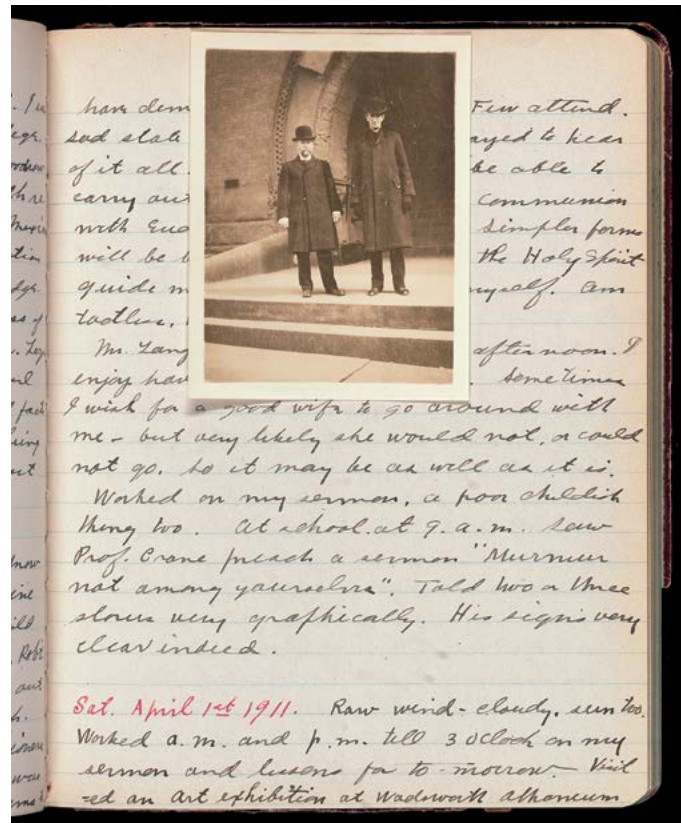 have dem Few attend.
sad state ayed to hear
of it all. be able to
carry out communion
with Euc simpler forms
will be the Holy Spirit
guide m myself. am
tactless,
Mr. Lang afternoon. I
enjoy hav sometimes
I wish for a good wife to go around with
me - but very likely she would not, or could
not go. So it may be as well as it is.
Worked on my sermon, a poor childish
thing too. At school at 9. a.m. saw
Prof. Crane preach a sermon "Murmur
not among yourselves". Told two or three
stories very graphically. His signs very
clear indeed.
Sat. April 1st 1911. Raw wind - cloudy, sun too.
Worked a.m. and p.m. till 3 oClock on my
sermon and lessons for to-morrow. Visit
=ed an art exhibition at Wadsworth Athaneum